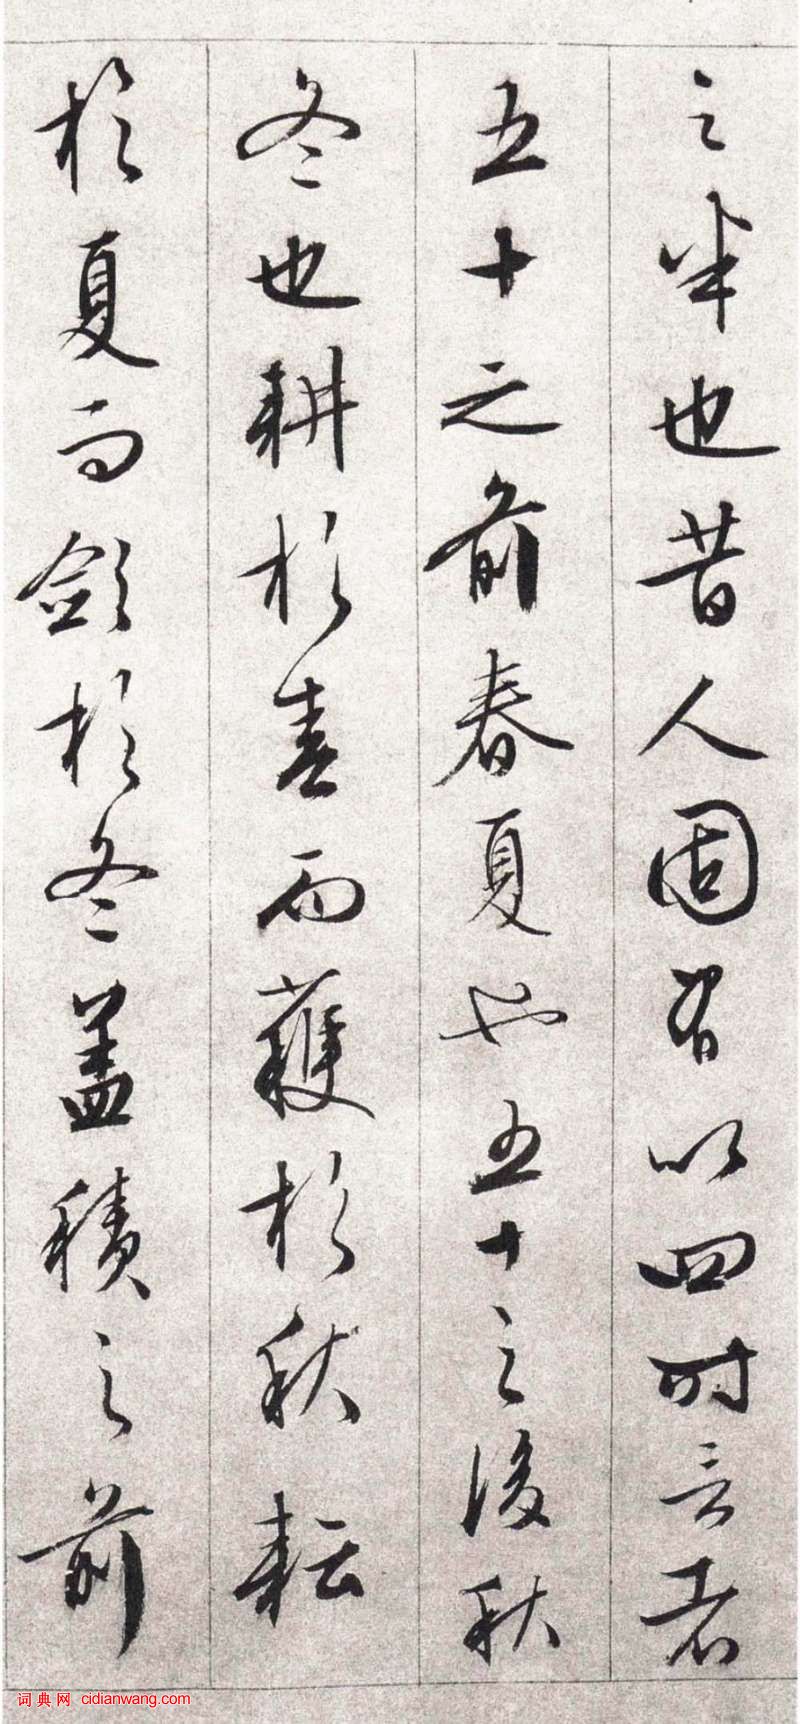 之半也昔人固有以四时言者
五十之前春夏也五十之後秋
冬也耕於春而穫於秋耘
於夏而斂於冬盖積之前
词典网 cidianwang.com